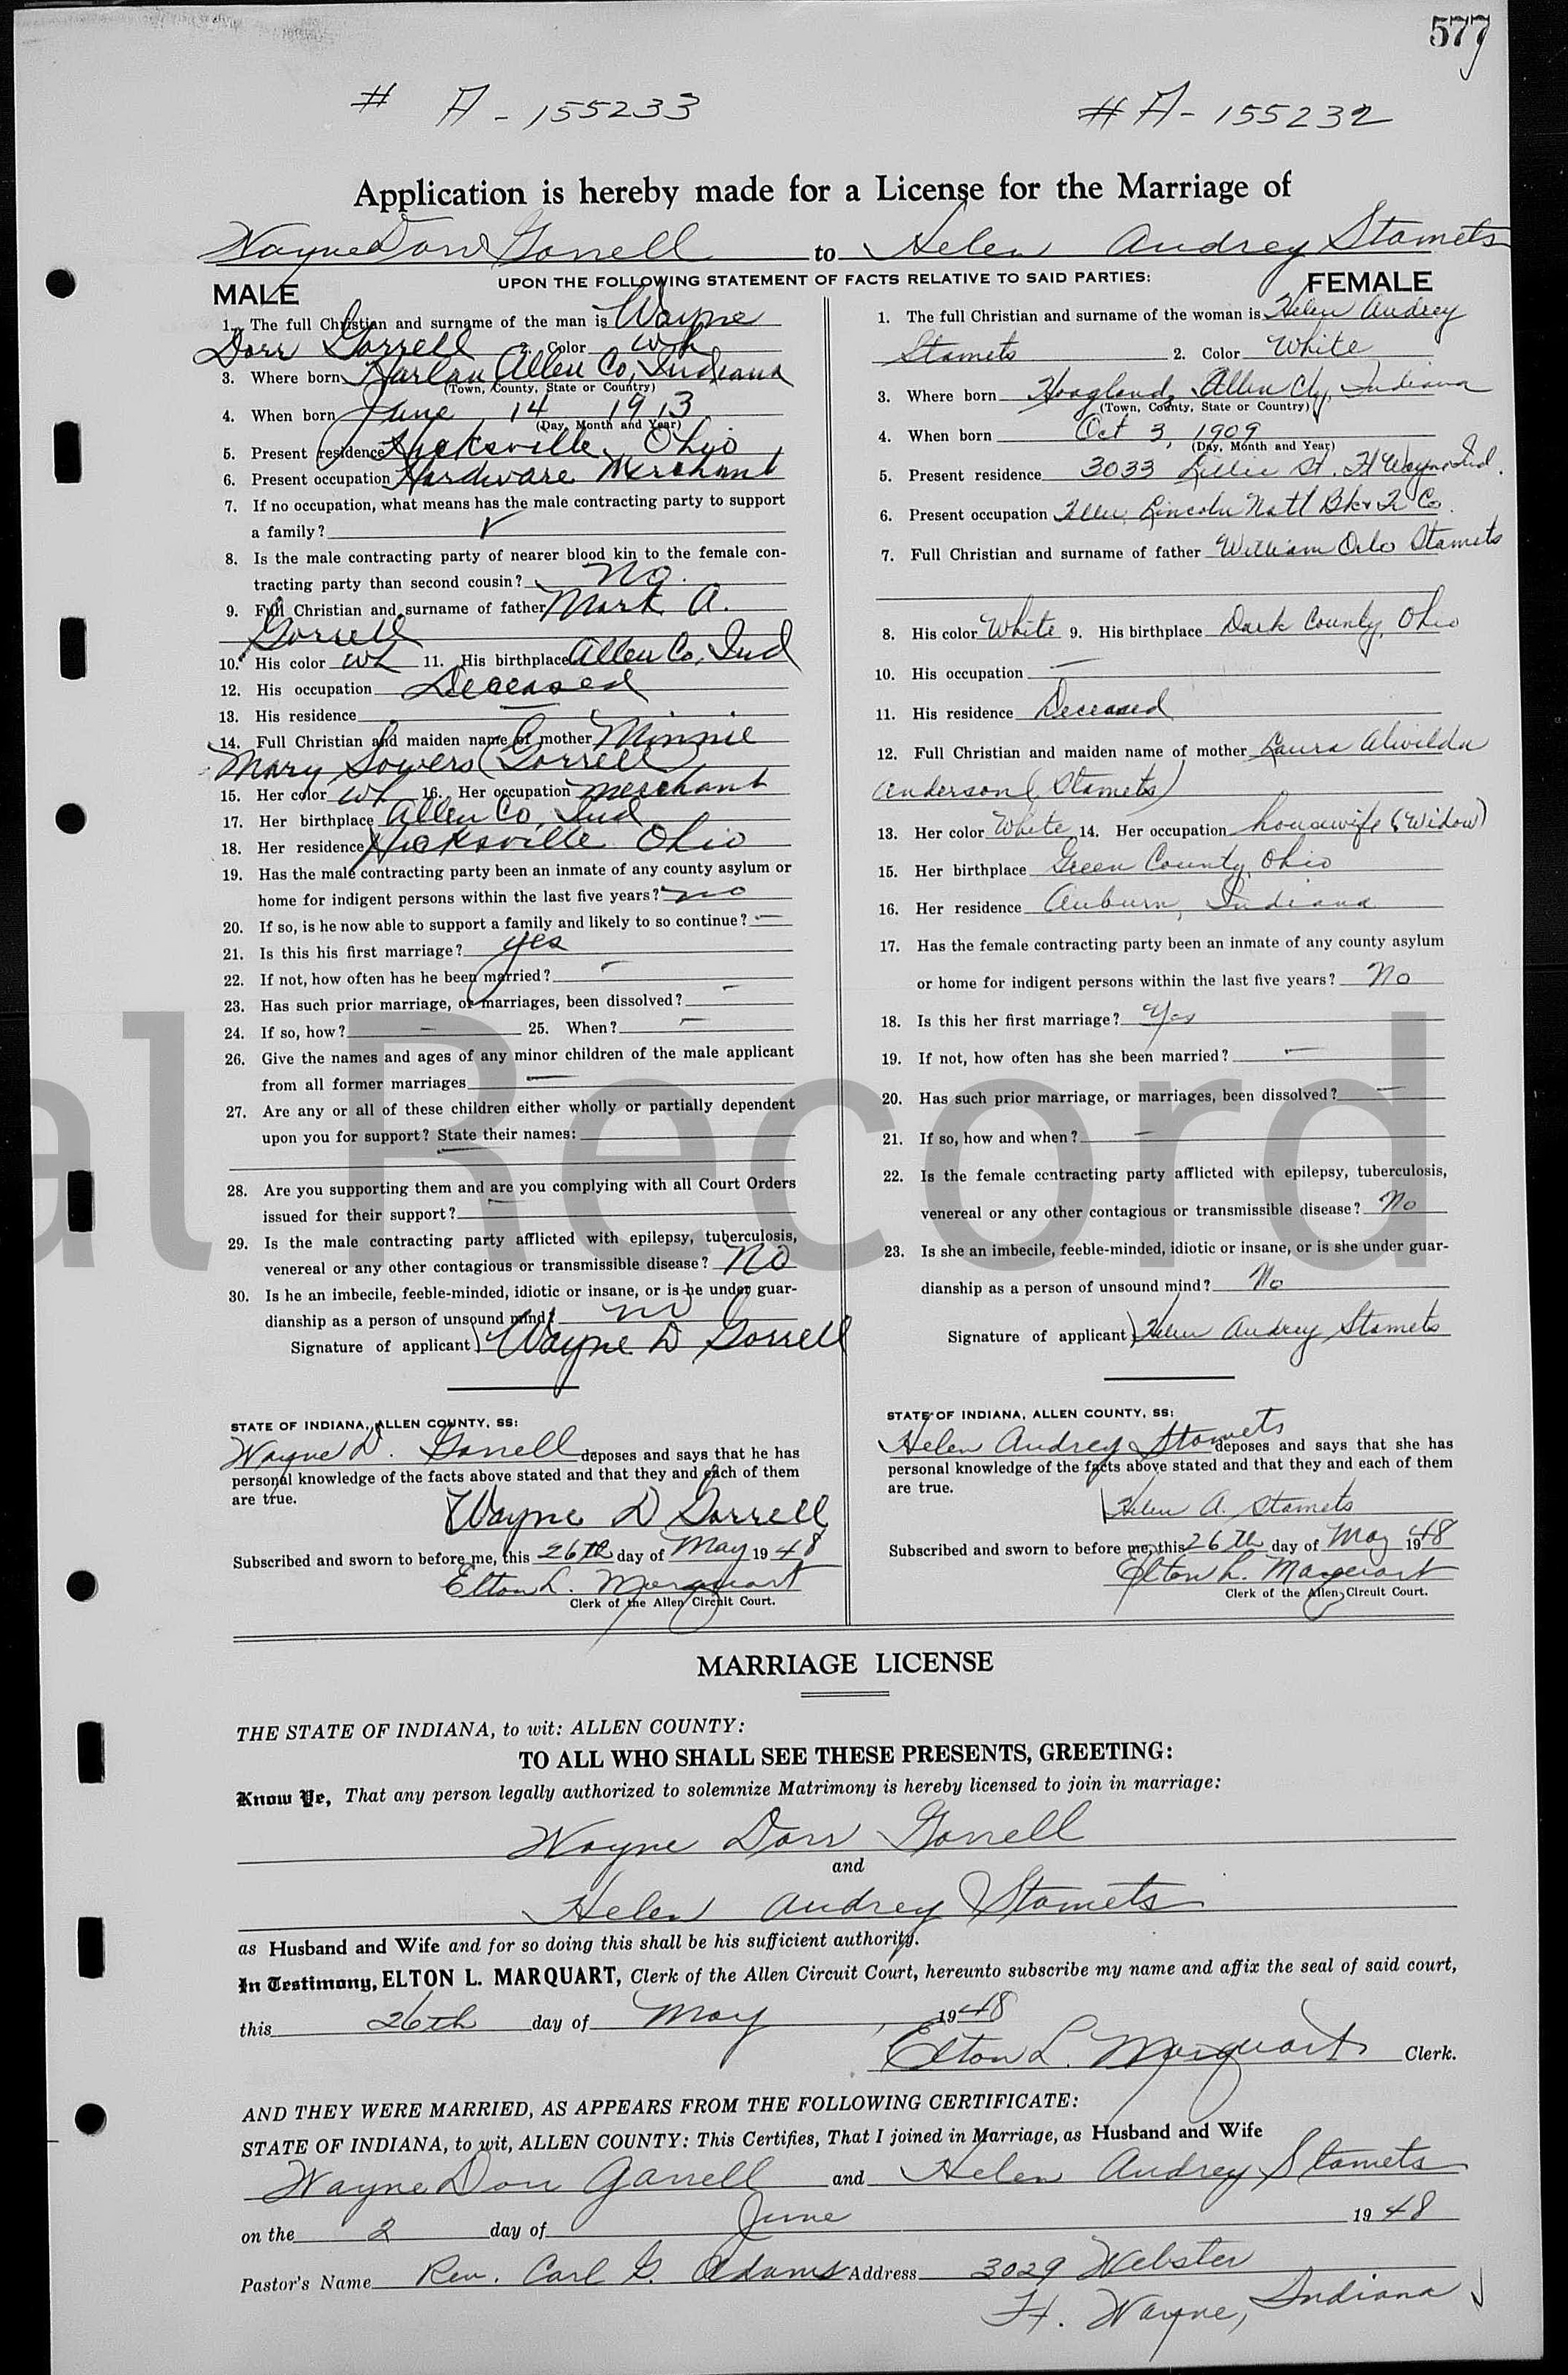 577
# A - 155233
# A - 155232
Application is hereby made for a License for the Marriage of
Wayne Dorr Gorrell to Helen Audrey Stamets
UPON THE FOLLOWING STATEMENT OF FACTS RELATIVE TO SAID PARTIES:
MALE
1. The full Christian and surname of the man is Wayne
Dorr Gorrell 2. Color Wh
3. Where born Harlan Allen Co, Indiana
(Town, County, State or Country)
4. When born June 14 1913
(Day, Month and Year)
5. Present residence Hicksville Ohio
6. Present occupation Hardware Merchant
7. If no occupation, what means has the male contracting party to support
a family?
8. Is the male contracting party of nearer blood kin to the female con-
tracting party than second cousin? No.
9. Full Christian and surname of father Mark A.
Gorrell
10. His color Wh 11. His birthplace Allen Co, Ind
12. His occupation Deceased
13. His residence
14. Full Christian and maiden name of mother Minnie
Mary Sowers (Gorrell)
15. Her color Wh 16. Her occupation merchant
17. Her birthplace Allen Co, Ind
18. Her residence Hicksville Ohio
19. Has the male contracting party been an inmate of any county asylum or
home for indigent persons within the last five years? no
20. If so, is he now able to support a family and likely to so continue? —
21. Is this his first marriage? yes
22. If not, how often has he been married? —
23. Has such prior marriage, or marriages, been dissolved? —
24. If so, how? — 25. When? —
26. Give the names and ages of any minor children of the male applicant
from all former marriages —
27. Are any or all of these children either wholly or partially dependent
upon you for support? State their names:
28. Are you supporting them and are you complying with all Court Orders
issued for their support? —
29. Is the male contracting party afflicted with epilepsy, tuberculosis,
venereal or any other contagious or transmissible disease? No
30. Is he an imbecile, feeble-minded, idiotic or insane, or is he under guar-
dianship as a person of unsound mind? no
Signature of applicant) Wayne D Gorrell
STATE OF INDIANA, ALLEN COUNTY, SS:
Wayne D. Gorrell deposes and says that he has
personal knowledge of the facts above stated and that they and each of them
are true.
Wayne D Gorrell
Subscribed and sworn to before me, this 26th day of May 1948
Elton L. Marquart
Clerk of the Allen Circuit Court.
FEMALE
1. The full Christian and surname of the woman is Helen Audrey
Stamets 2. Color White
3. Where born Hoagland, Allen Cty, Indiana
(Town, County, State or Country)
4. When born Oct 3, 1909
(Day, Month and Year)
5. Present residence 3033 Lillie St. Ft Wayne Ind.
6. Present occupation Teller, Lincoln Natl Bk & Tr Co.
7. Full Christian and surname of father William Orlo Stamets
8. His color White 9. His birthplace Dark County, Ohio
10. His occupation —
11. His residence Deceased
12. Full Christian and maiden name of mother Laura Alwilda
Anderson (Stamets)
13. Her color White 14. Her occupation housewife (Widow)
15. Her birthplace Green County, Ohio
16. Her residence Auburn, Indiana
17. Has the female contracting party been an inmate of any county asylum
or home for indigent persons within the last five years? No
18. Is this her first marriage? Yes
19. If not, how often has she been married? —
20. Has such prior marriage, or marriages, been dissolved? —
21. If so, how and when? —
22. Is the female contracting party afflicted with epilepsy, tuberculosis,
venereal or any other contagious or transmissible disease? No
23. Is she an imbecile, feeble-minded, idiotic or insane, or is she under guar-
dianship as a person of unsound mind? No
Signature of applicant) Helen Audrey Stamets
STATE OF INDIANA, ALLEN COUNTY, SS:
Helen Audrey Stamets deposes and says that she has
personal knowledge of the facts above stated and that they and each of them
are true.
Helen A. Stamets
Subscribed and sworn to before me, this 26th day of May 1948
Elton L. Marquart
Clerk of the Allen Circuit Court.
al Record
MARRIAGE LICENSE
THE STATE OF INDIANA, to wit: ALLEN COUNTY:
TO ALL WHO SHALL SEE THESE PRESENTS, GREETING:
Know Ye, That any person legally authorized to solemnize Matrimony is hereby licensed to join in marriage:
Wayne Dorr Gorrell
and
Helen Audrey Stamets
as Husband and Wife and for so doing this shall be his sufficient authority.
In Testimony, ELTON L. MARQUART, Clerk of the Allen Circuit Court, hereunto subscribe my name and affix the seal of said court,
this 26th day of May, 1948
Elton L. Marquart Clerk.
AND THEY WERE MARRIED, AS APPEARS FROM THE FOLLOWING CERTIFICATE:
STATE OF INDIANA, to wit, ALLEN COUNTY: This Certifies, That I joined in Marriage, as Husband and Wife
Wayne Dorr Gorrell and Helen Audrey Stamets
on the 2 day of June 1948
Pastor's Name Rev. Carl G. Adams Address 3029 Webster
Ft. Wayne, Indiana